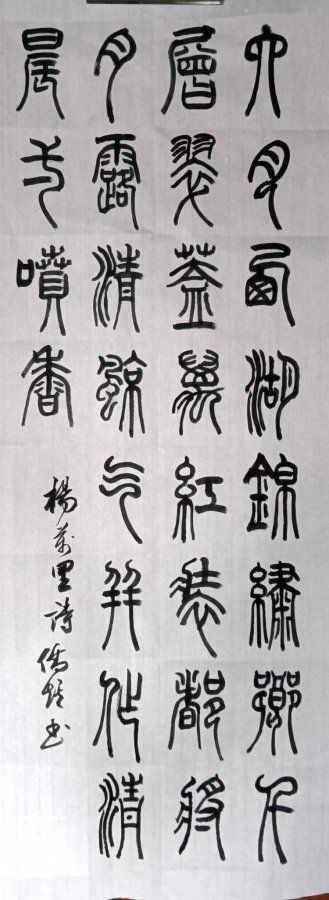 六月西湖錦繡鄉千
層翠蓋萬紅裝都將
月露清涼气并作清
晨噴香
楊萬里詩 书